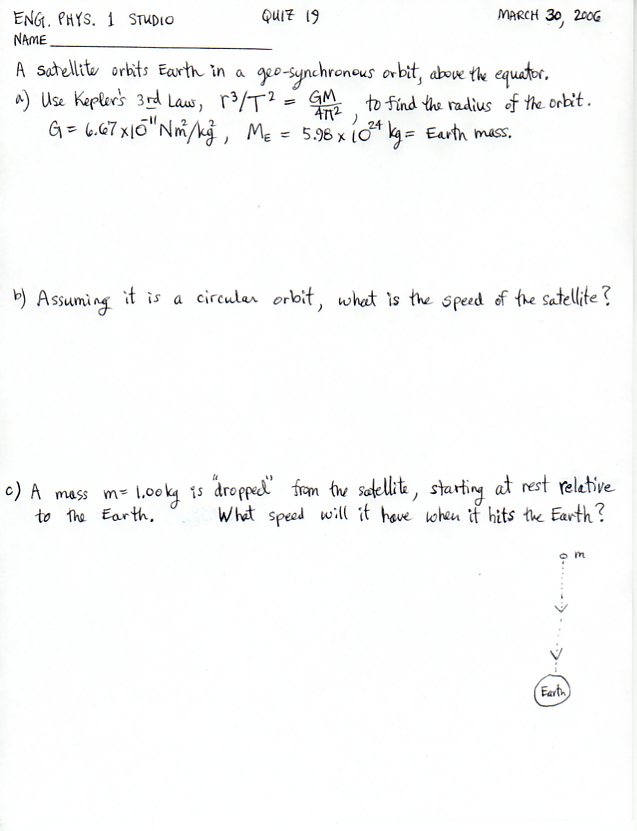 ENG. PHYS. 1 STUDIO QUIZ 19 MARCH 30, 2006
NAME
A satellite orbits Earth in a geo-synchronous orbit, above the equator.
a) Use Kepler's 3rd Law, r³/T² = GM/4π², to find the radius of the orbit.
G = 6.67 x 10⁻¹¹ Nm²/kg², M_E = 5.98 x 10²⁴ kg = Earth mass.
b) Assuming it is a circular orbit, what is the speed of the satellite?
c) A mass m = 1.00 kg is "dropped" from the satellite, starting at rest relative
to the Earth. What speed will it have when it hits the Earth?
m
Earth